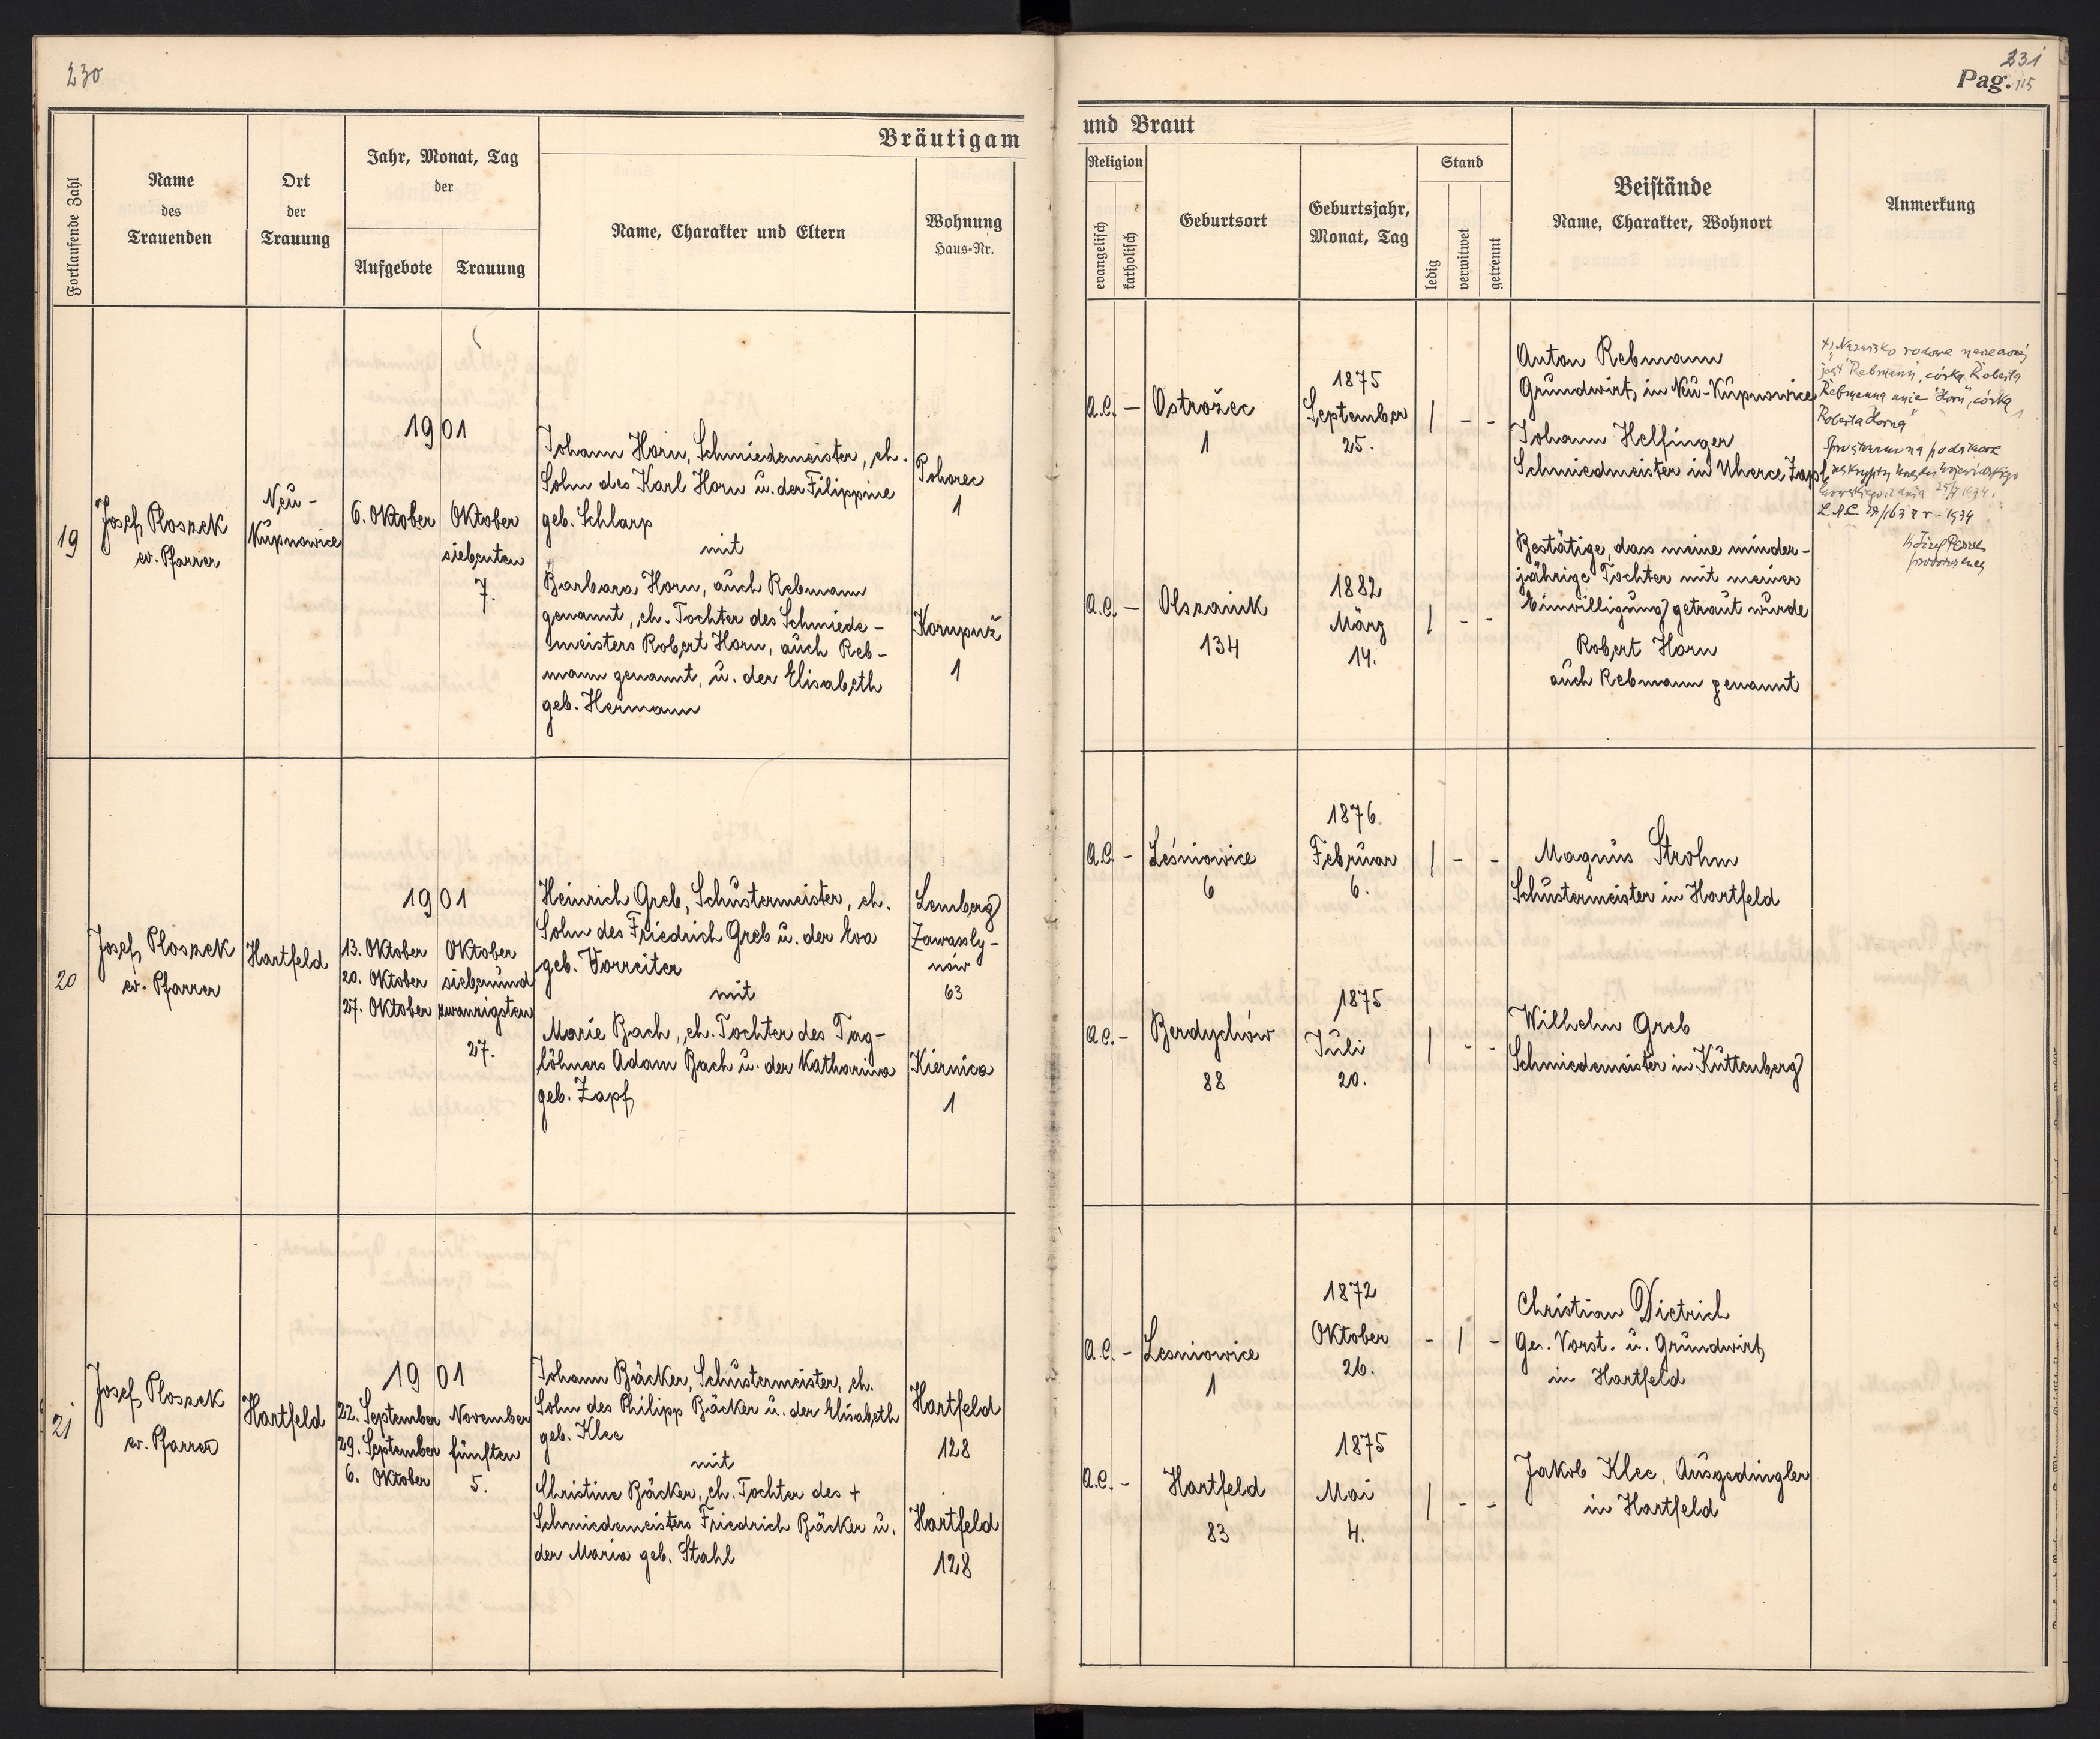 230
231
Pag. 115
Bräutigam
und Braut
Fortlaufende Zahl
Name
des
Trauenden
Ort
der
Trauung
Jahr, Monat, Tag
der
Aufgebote
Trauung
Name, Charakter und Eltern
Wohnung
Haus-Nr.
Religion
evangelisch
katholisch
Geburtsort
Geburtsjahr,
Monat, Tag
Stand
ledig
verwitwet
getrennt
Beistände
Name, Charakter, Wohnort
Anmerkung
19
Josef Ploszek
ev. Pfarrer
Neu-
Kupnowice
1901
6. Oktober
Oktober
siebenten
7.
Johann Horn, Schmiedemeister, eh.
Sohn des Karl Horn u. der Filippine
geb. Schlarp
mit
Barbara Horn, auch Rebmann
genannt, eh. Tochter des Schmiede-
meisters Robert Horn, auch Reb-
mann genannt, u. der Elisabeth
geb. Hermann
Pohorec
1
Kornpuź
1
A.C. –
Ostrożec
1
1875
September
25.
| - -
A.C. –
Olszanik
134
1882
März
14.
| - -
Anton Rebmann
Grundwirt, in Neu-Kupnowice
Johann Helfinger
Schmiedmeister in Uherce Zapl.
Bestätige, dass meine minder-
jährige Tochter mit meiner
Einwilligung getraut wurde
Robert Horn
auch Rebmann genannt
+) Nazwisko rodowe
jest "Rebmann", córka Roberta
Rebmanna a nie "Horn", córka
Roberta Horna"
20
Josef Ploszek
ev. Pfarrer
Hartfeld
1901
13. Oktober
20. Oktober
27. Oktober
Oktober
siebenund
zwanzigsten
27.
Heinrich Greb, Schustermeister, eh.
Sohn des Friedrich Greb u. der Eva
geb. Vorreiter
mit
Marie Bach, eh. Tochter des Tag-
löhners Adam Bach u. der Katharina
geb. Zapf
Lemberg
Zawassly-
nów
63
Kiernica
1
A.C. -
Leśniowice
6
1876.
Februar
6.
| - -
A.C. -
Berdychów
88
1875
Juli
20.
| - -
Magnus Strohm
Schustermeister in Hartfeld
Wilhelm Greb
Schmiedemeister in Kuttenberg
21
Josef Ploszek
ev. Pfarrer
Hartfeld
1901
22. September
29. September
6. Oktober
November
fünften
5.
Johann Bäcker, Schustermeister, eh.
Sohn des Philipp Bäcker u. der Elisabeth
geb. Klee
mit
Christine Bäcker, eh. Tochter des +
Schmiedemeisters Friedrich Bäcker u.
der Maria geb. Stahl
Hartfeld
128
Hartfeld
128
A.C. -
Lesniowice
1
1872
Oktober
26.
- | -
A.C. -
Hartfeld
83
1875
Mai
4.
| - -
Christian Dietrich
Ge. Vorst. u. Grundwirt,
in Hartfeld
Jakob Klee, Ausgedingler
in Hartfeld